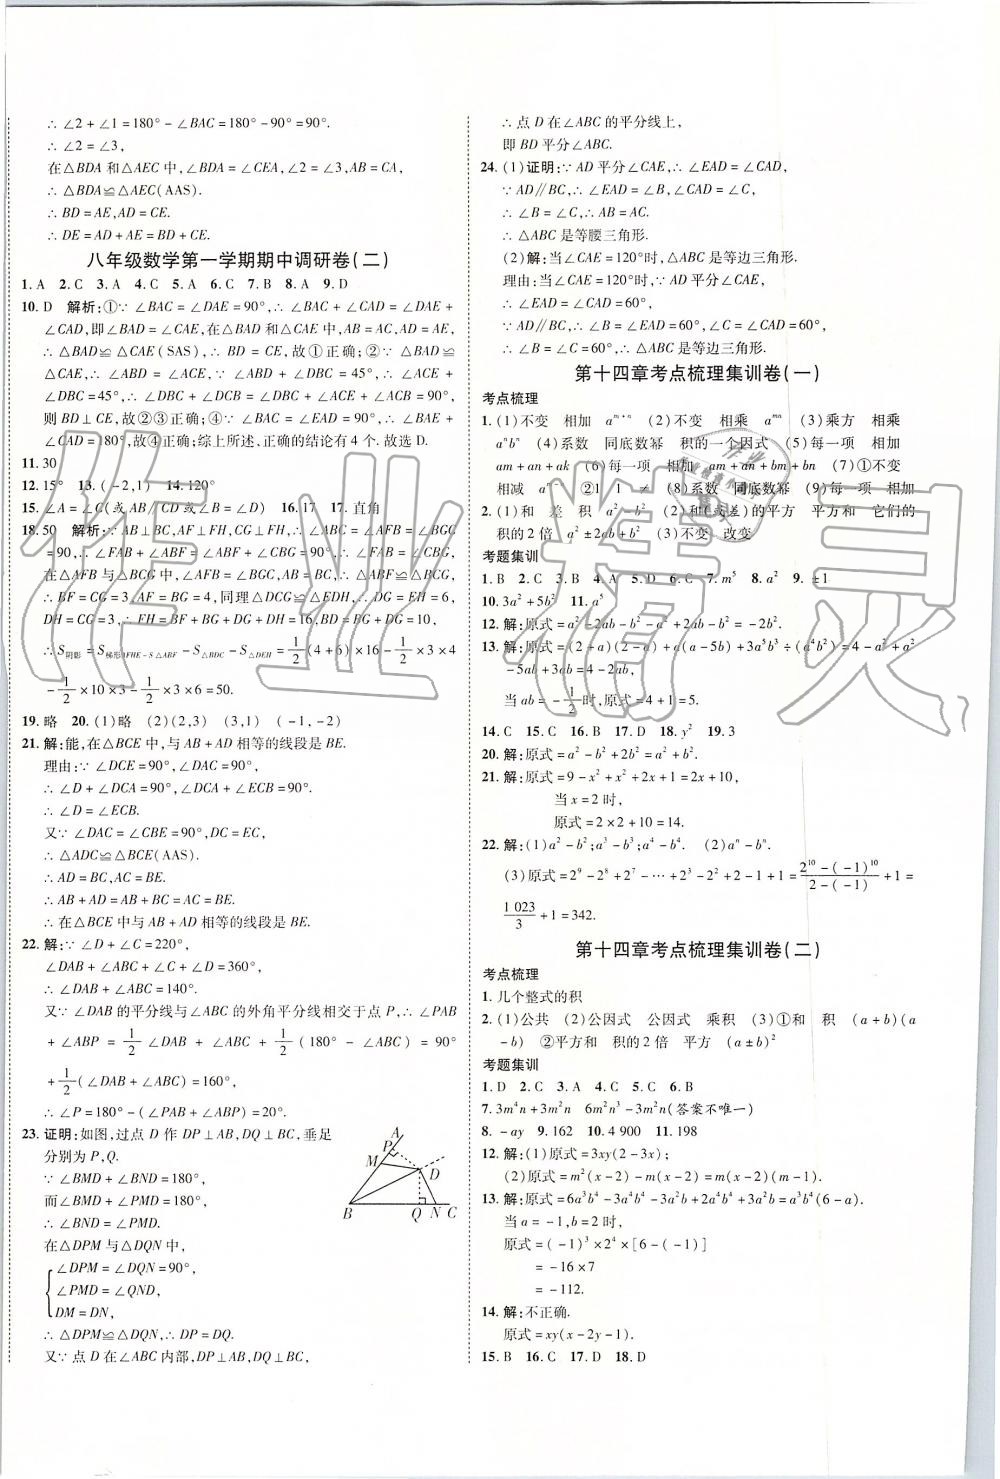 ∴ ∠2 + ∠1 = 180° − ∠BAC = 180° − 90° = 90°.
∴ ∠2 = ∠3,
在△BDA 和△AEC 中,∠BDA = ∠CEA,∠2 = ∠3,AB = CA,
∴ △BDA≌△AEC(AAS).
∴ BD = AE,AD = CE.
∴ DE = AD + AE = BD + CE.
八年级数学第一学期期中调研卷(二)
1. A 2. C 3. A 4. C 5. A 6. C 7. B 8. A 9. D
10. D 解析:①∵ ∠BAC = ∠DAE = 90°,∴ ∠BAC + ∠CAD = ∠DAE +
∠CAD,即∠BAD = ∠CAE,在△BAD 和△CAE 中,AB = AC,AD = AE,
∴ △BAD≌△CAE(SAS),∴ BD = CE,故①正确;②∵ △BAD≌
△CAE,∴ ∠ABD = ∠ACE,∵ ∠ABD + ∠DBC = 45°,∴ ∠ACE +
∠DBC = 45°,∴ ∠DBC + ∠DCB = ∠DBC + ∠ACE + ∠ACB = 90°,
则 BD⊥CE,故②③正确;④∵ ∠BAC = ∠EAD = 90°,∴ ∠BAE +
∠CAD = 180°,故④正确;综上所述,正确的结论有 4 个. 故选 D.
11. 30
12. 15° 13. (−2,1) 14. 120°
15. ∠A = ∠C(或 AB∥CD或∠B = ∠D) 16. 17 17. 直角
18. 50 解析:∵ AB⊥BC,AF⊥FH,CG⊥FH,∴ ∠ABC = ∠AFB = ∠BGC
= 90,∴ ∠FAB + ∠ABF = ∠ABF + ∠CBG = 90°,∴ ∠FAB = ∠CBG,
在△FAB 与△GBC 中,∠AFB = ∠BGC,AB = BC,∴ △FAB≌△GBC,
∴ BF = CG = 3,AF = BG = 4,同理△CDG≌△EDH,∴ DG = EH = 6,
DH = CG = 3,∴ FH = BF + BG + DG + DH = 16,BD = BG + DG = 10,
∴ S阴影 = S梯形AFHE − S△ABF − S△BDC − S△DEH = 1/2(4 + 6) × 16 − 1/2 × 3 × 4
− 1/2 × 10 × 3 − 1/2 × 3 × 6 = 50.
19. 略 20. (1)略 (2)(2,3) (3,1) (−1,−2)
21. 解:能,在△BCE 中,与 AB + AD 相等的线段是 BE.
理由:∵ ∠DCE = 90°,∠DAC = 90°,
∴ ∠D + ∠DCA = 90°,∠DCA + ∠ECB = 90°,
∴ ∠D = ∠ECB.
又∵ ∠DAC = ∠CBE = 90°,DC = EC,
∴ △ADC≌△BCE(AAS).
∴ AD = BC,AC = BE.
∴ AB + AD = AB + BC = AC = BE.
∴ 在△BCE 中与 AB + AD 相等的线段是 BE.
22. 解:∵ ∠D + ∠C = 220°,
∠DAB + ∠ABC + ∠C + ∠D = 360°,
∴ ∠DAB + ∠ABC = 140°.
又∵ ∠DAB 的平分线与∠ABC 的外角平分线相交于点 P,∴ ∠PAB
+ ∠ABP = 1/2 ∠DAB + ∠ABC + 1/2 (180° − ∠ABC) = 90°
+ 1/2(∠DAB + ∠ABC) = 160°,
∴ ∠P = 180° − (∠PAB + ∠ABP) = 20°.
23. 证明:如图,过点 D 作 DP⊥AB,DQ⊥BC,垂足
分别为 P,Q.
∵ ∠BMD + ∠BND = 180°,
而∠BMD + ∠PMD = 180°,
∴ ∠BND = ∠PMD.
在△DPM 与△DQN 中,
∠DPM = ∠DQN = 90°,
∠PMD = ∠QND,
DM = DN,
∴ △DPM≌△DQN,∴ DP = DQ.
又∵ 点 D 在∠ABC 内部,DP⊥AB,DQ⊥BC,
A
P
M
D
B
Q N C
∴ 点 D 在∠ABC 的平分线上,
即 BD 平分∠ABC.
24. (1)证明:∵ AD 平分∠CAE,∴ ∠EAD = ∠CAD,
∵ AD∥BC,∴ ∠EAD = ∠B,∠CAD = ∠C,
∴ ∠B = ∠C,∴ AB = AC.
∴ △ABC 是等腰三角形.
(2)解:当∠CAE = 120°时,△ABC 是等边三角形.
理由:当∠CAE = 120°时,∵ AD 平分∠CAE,
∴ ∠EAD = ∠CAD = 60°,
∵ AD∥BC,∴ ∠B = ∠EAD = 60°,∠C = ∠CAD = 60°,
∴ ∠B = ∠C = 60°,∴ △ABC 是等边三角形.
第十四章考点梳理集训卷(一)
考点梳理
1. (1)不变 相加 aᵐ⁺ⁿ (2)不变 相乘 aᵐⁿ (3)乘方 相乘
aⁿbⁿ (4)系数 同底数幂 积的一个因式 (5)每一项 相加
am + an + ak (6)每一项 相加 am + an + bm + bn (7)①不变
相减 aᵐ⁻ⁿ ②1 1 ≠ (8)系数 同底数幂 (9)每一项 相加
2. (1)和 差 积 a² − b² (2)和(或差)的平方 平方和 它们的
积的2倍 a² ± 2ab + b² (3)不变 改变
考题集训
1. B 2. C 3. B 4. A 5. D 6. C 7. m⁵ 8. a² 9. ±1
10. 3a² + 5b² 11. a⁵
12. 解:原式 = a² − 2ab − b² − a² + 2ab − b² = −2b².
13. 解:原式 = (2 + a)(2 − a) + a(a − 5b) + 3a⁵b³ ÷ (a⁴b²) = 4 − a² + a²
− 5ab + 3ab = 4 − 2ab,
当 ab = −1/2时,原式 = 4 + 1 = 5.
14. C 15. C 16. B 17. D 18. y² 19. 3
20. 解:原式 = a² − b² + 2b² = a² + b².
21. 解:原式 = 9 − x² + x² + 2x + 1 = 2x + 10,
当 x = 2 时,
原式 = 2 × 2 + 10 = 14.
22. 解:(1)a² − b²;a³ − b³;a⁴ − b⁴. (2)aⁿ − bⁿ.
(3)原式 = 2⁹ − 2⁸ + 2⁷ − ⋯ + 2³ − 2² + 2 − 1 + 1 = (2¹⁰ − (−1)¹⁰)/(2 − (−1)) + 1 =
1 023/3 + 1 = 342.
第十四章考点梳理集训卷(二)
考点梳理
1. 几个整式的积
2. (1)公共 (2)公因式 公因式 乘积 (3)①和 积 (a + b)(a
− b) ②平方和 积的2倍 平方 (a ± b)²
考题集训
1. D 2. C 3. A 4. C 5. C 6. B
7. 3m⁴n + 3m²n 6m²n³ − 3m²n(答案不唯一)
8. −ay 9. 162 10. 4 900 11. 198
12. 解:(1)原式 = 3xy(2 − 3x);
(2)原式 = m²(x − 2) − m(x − 2) = m(x − 2)(m − 1).
13. 解:原式 = 6a³b⁴ − 3a⁴b⁴ − 3a²b + 2a⁴b⁴ + 3a²b = a³b⁴(6 − a).
当 a = −1,b = 2 时,
原式 = (−1)³ × 2⁴ × [6 − (−1)]
= −16 × 7
= −112.
14. 解:不正确.
原式 = xy(x − 2y − 1).
15. B 16. C 17. D 18. D
作业精灵